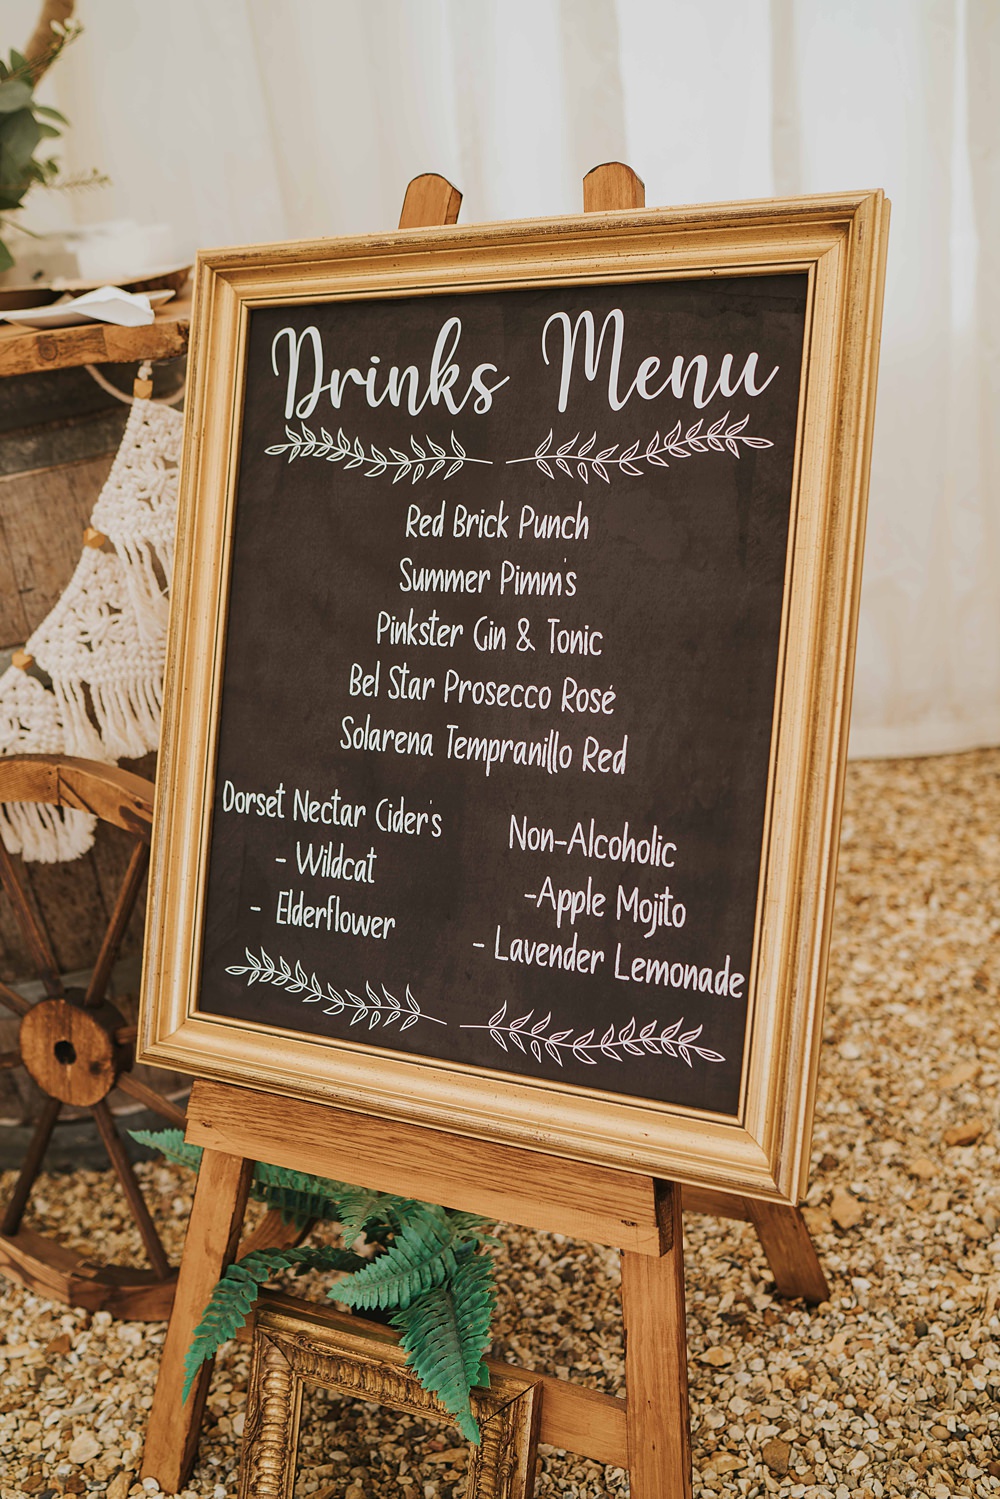 Drinks Menu
Red Brick Punch
Summer Pimm's
Pinkster Gin & Tonic
Bel Star Prosecco Rosé
Solarena Tempranillo Red
Dorset Nectar Cider's
- Wildcat
- Elderflower
Non-Alcoholic
-Apple Mojito
- Lavender Lemonade